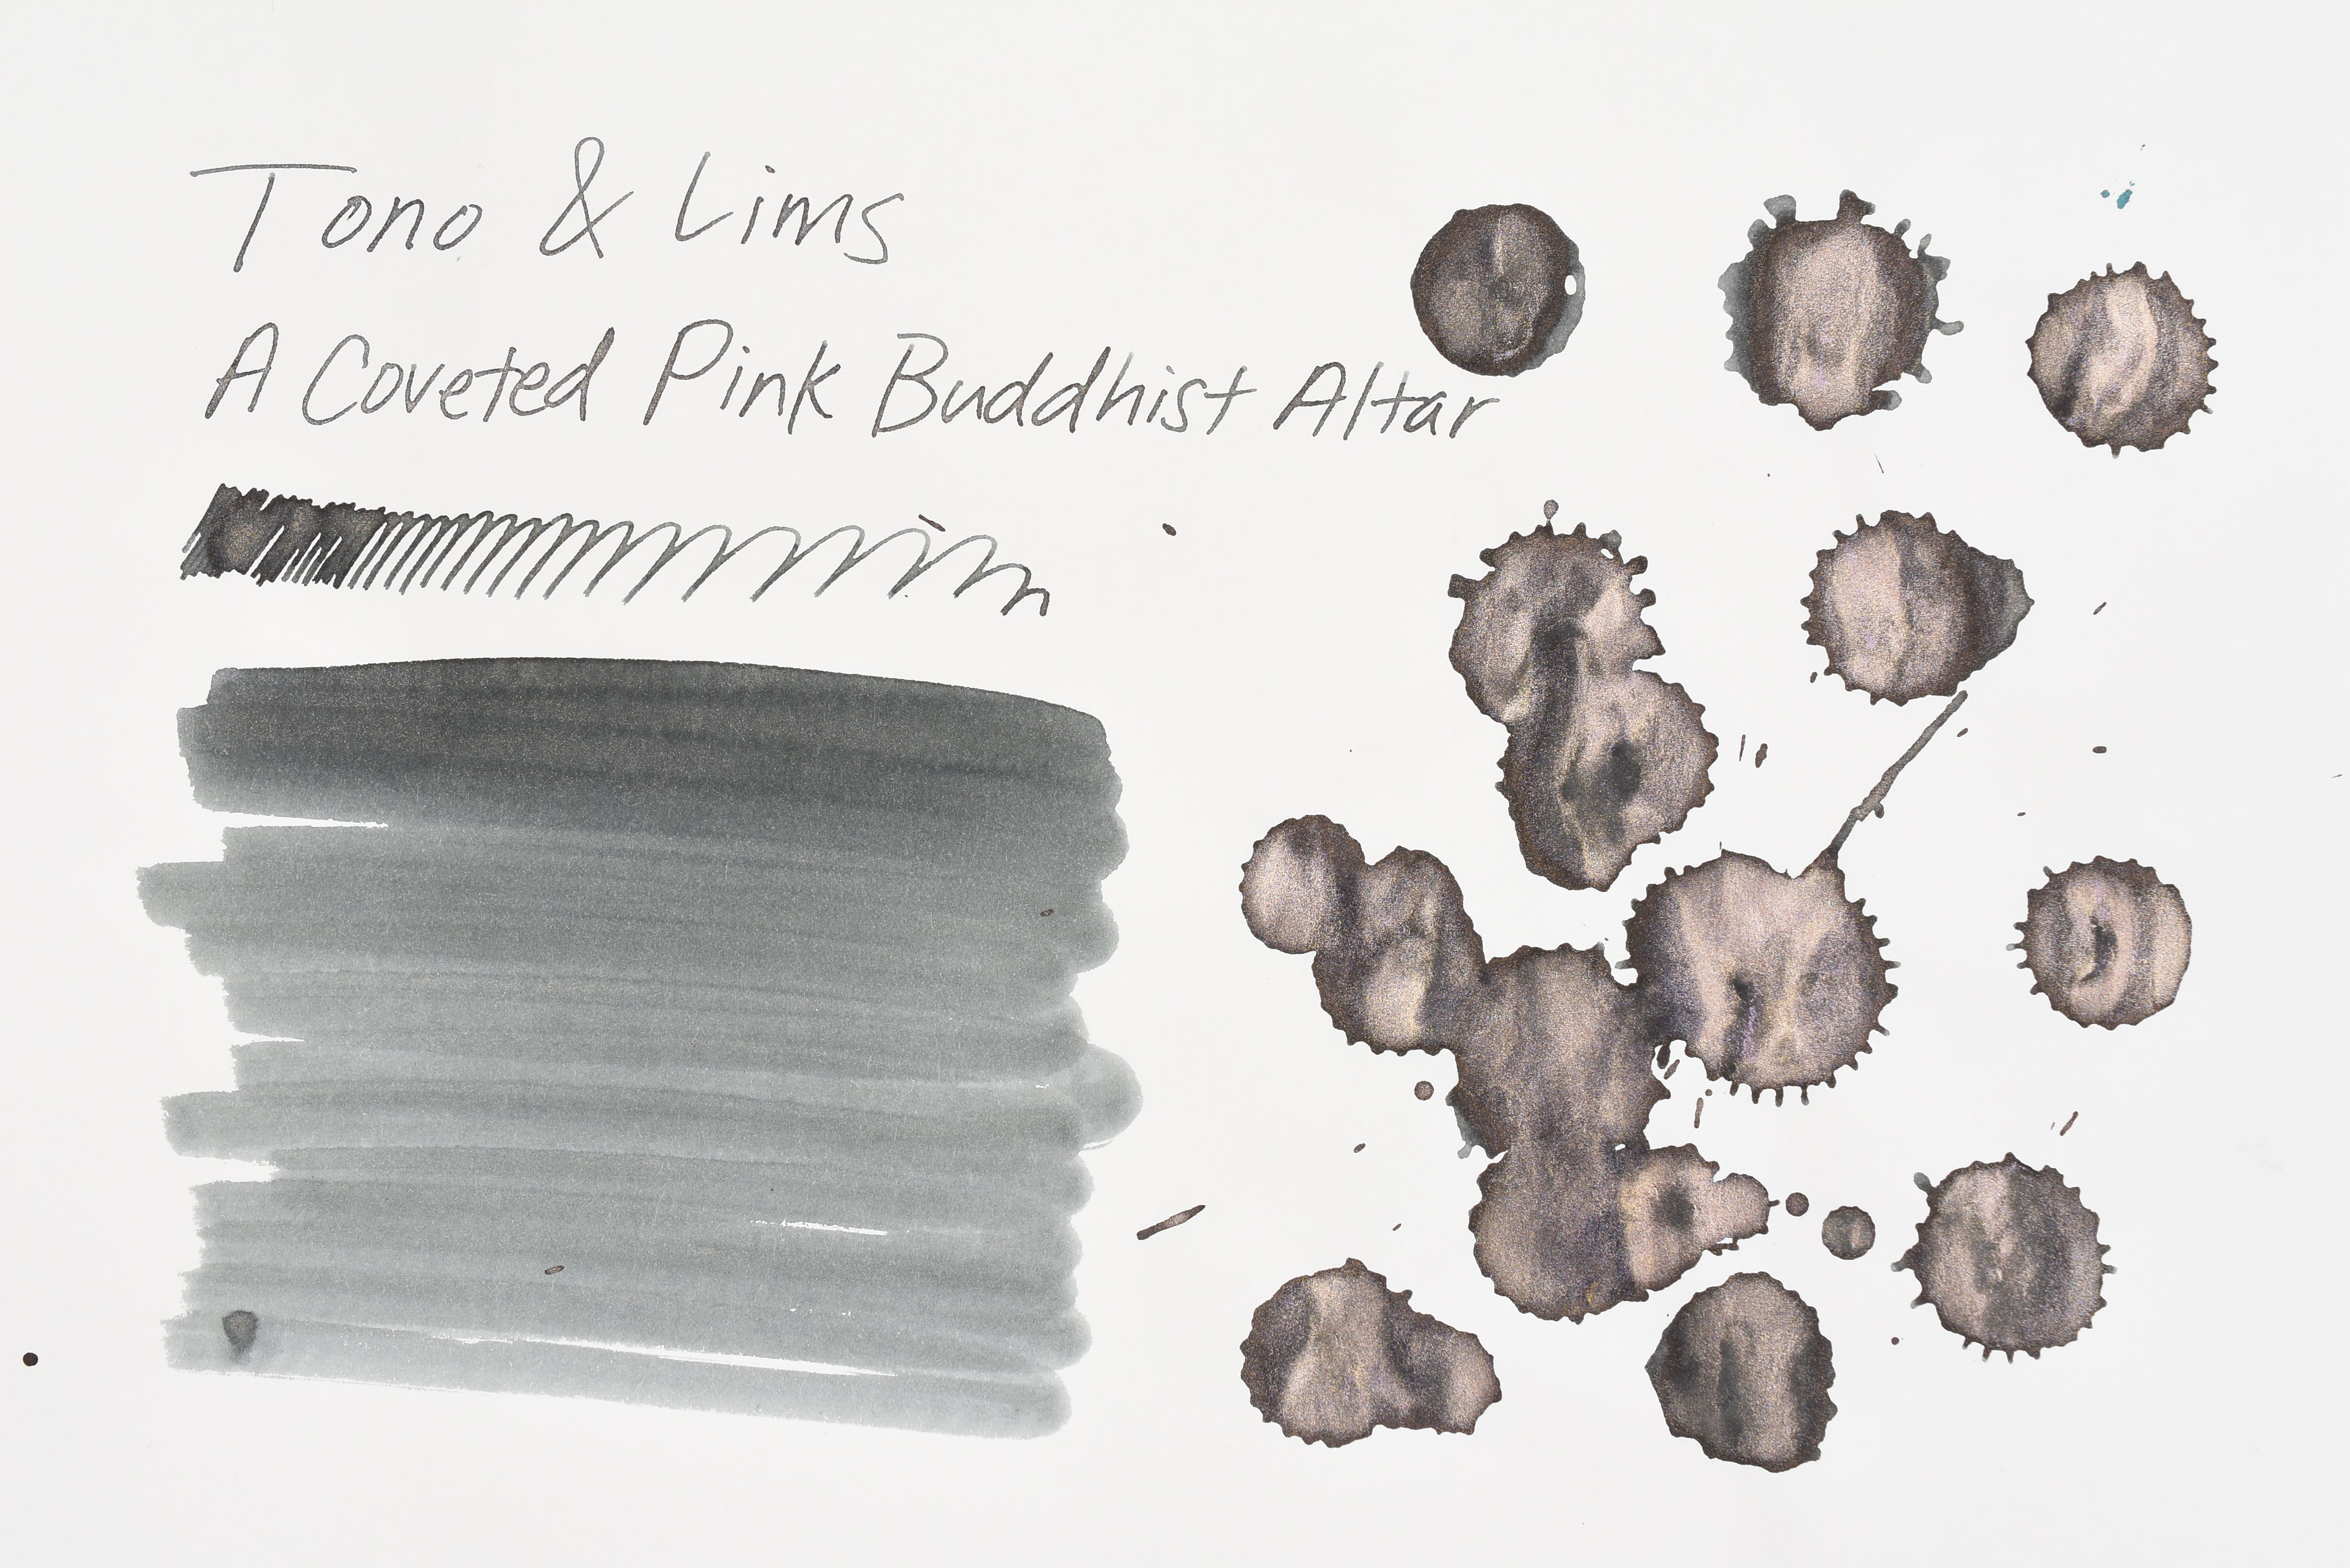 Tono & Lims
A Coveted Pink Buddhist Altar